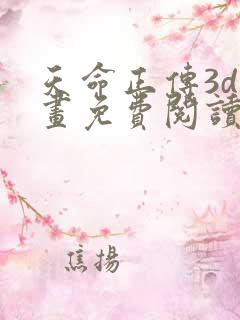 天命正傳3d
畫免費閱讀
焦揚